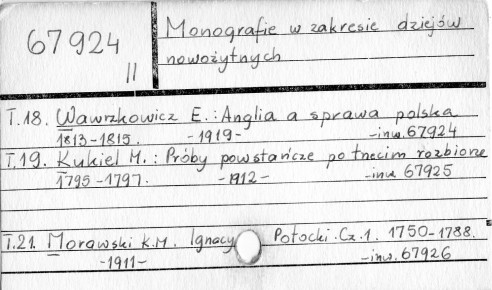 67924
II
Monografie w zakresie dziejów
nowożytnych
T.18. Wawrzkowicz E.: Anglia a sprawa polska
1813-1815. -1919- -inw.67924
T.19. Kukiel M.: Próby powstańcze po trzecim rozbiorze
1795-1797. -1912- -inw. 67925
T.21. Morawski K.M. Ignacy Potocki. Cz.1. 1750-1788.
-1911- -inw. 67926